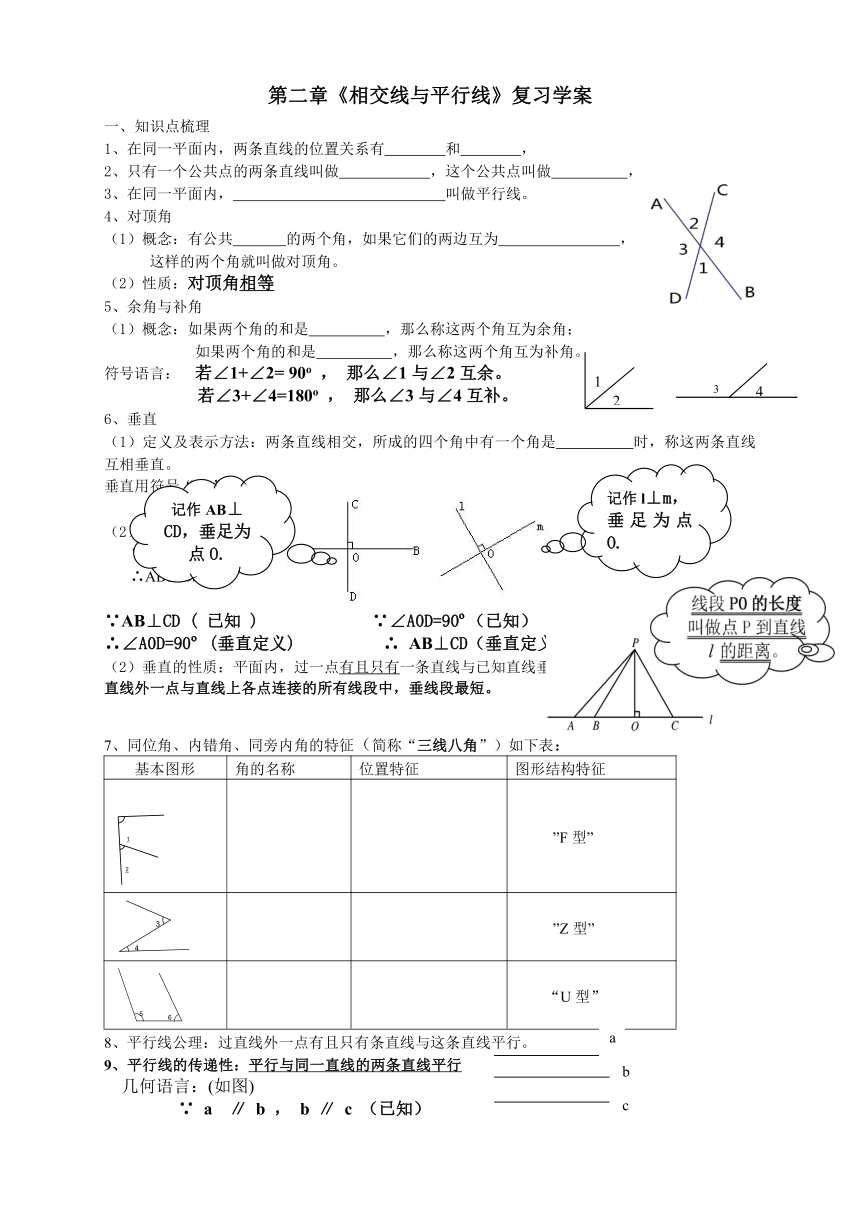 第二章《相交线与平行线》复习学案
一、知识点梳理
1、在同一平面内，两条直线的位置关系有________和________，
2、只有一个公共点的两条直线叫做____________，这个公共点叫做__________，
3、在同一平面内，____________________________叫做平行线。
4、对顶角
（1）概念：有公共_______的两个角，如果它们的两边互为________________，
这样的两个角就叫做对顶角。
（2）性质：对顶角相等
A
C
2
3
4
1
D
B
5、余角与补角
（1）概念：如果两个角的和是__________，那么称这两个角互为余角；
如果两个角的和是__________，那么称这两个角互为补角。
符号语言： 若∠1+∠2= 90° ， 那么∠1与∠2互余。
若∠3+∠4=180° ， 那么∠3与∠4互补。
1
2
3
4
6、垂直
（1）定义及表示方法：两条直线相交，所成的四个角中有一个角是__________时，称这两条直线
互相垂直。
垂直用符号
记作 AB⊥
CD，垂足为
点O.
C
O
B
D
l
m
O
记作l⊥m，
垂足为点
O.
（2
∴AB
∵AB⊥CD ( 已知 ) ∵∠AOD=90°（已知）
∴∠AOD=90° (垂直定义) ∴ AB⊥CD（垂直定义
（2）垂直的性质：平面内，过一点有且只有一条直线与已知直线垂
直线外一点与直线上各点连接的所有线段中，垂线段最短。
线段PO的长度
叫做点P到直线
l的距离。
P
A B O C l
7、同位角、内错角、同旁内角的特征（简称“三线八角”）如下表：
基本图形 角的名称 位置特征 图形结构特征
1
2
”F型”
3
4
”Z型”
5 6
“U型”
8、平行线公理：过直线外一点有且只有条直线与这条直线平行。
9、平行线的传递性：平行与同一直线的两条直线平行
几何语言：(如图)
∵ a ∥ b ， b ∥ c （已知）
a
b
c